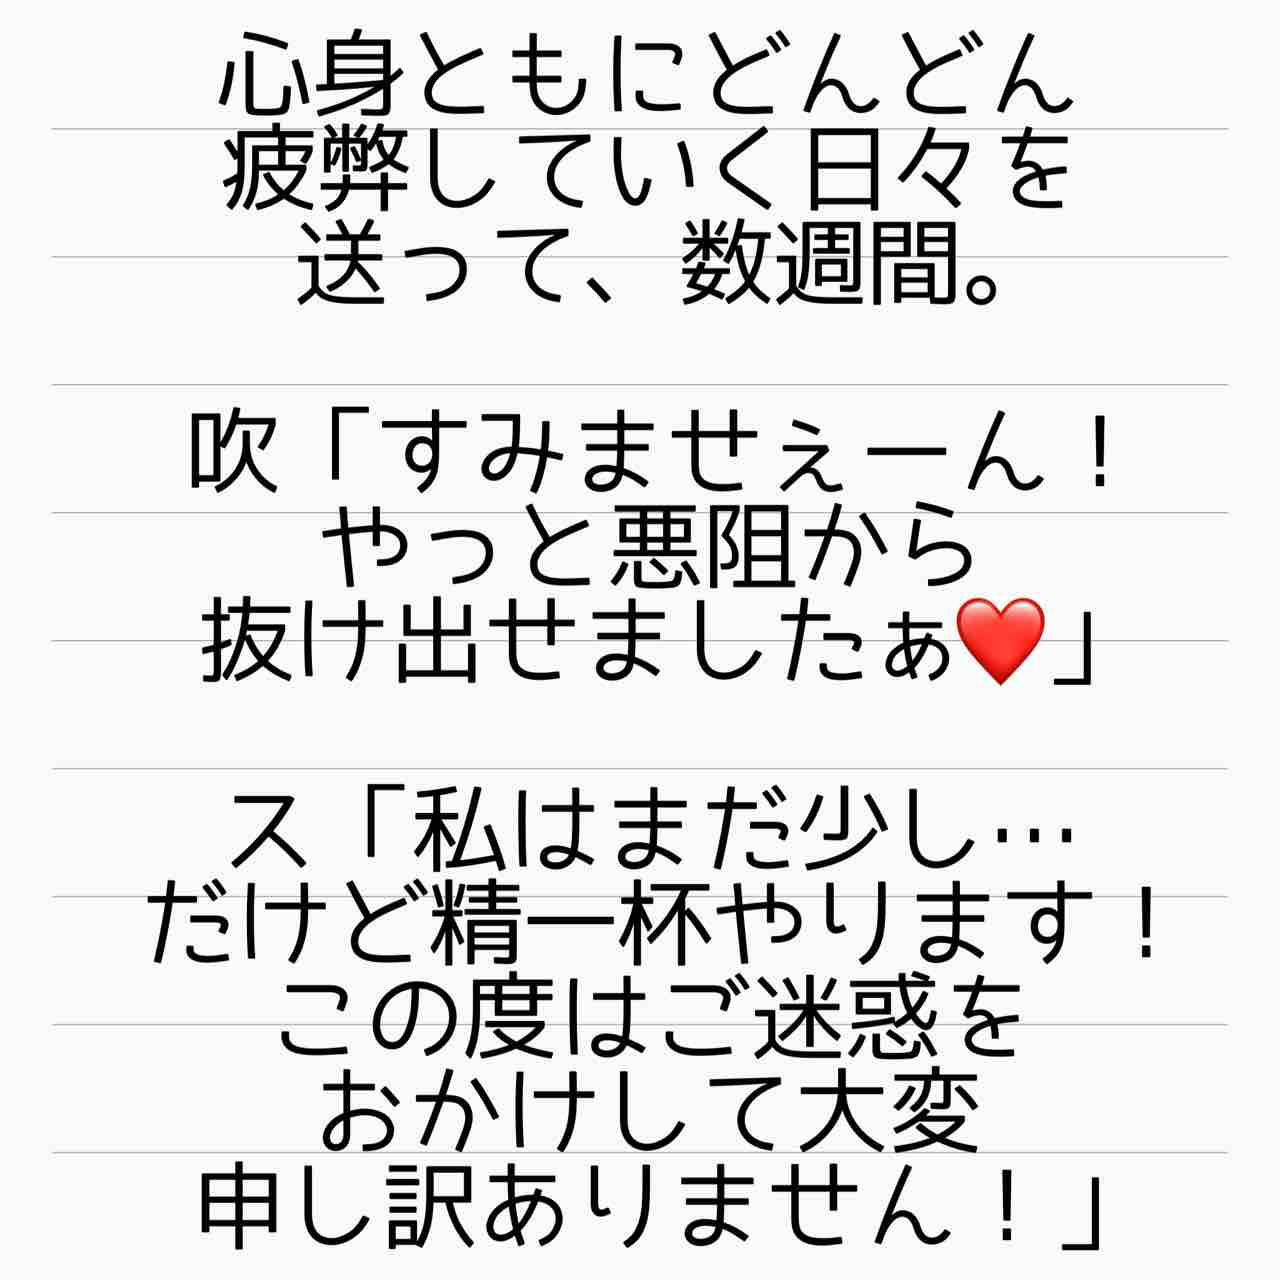 心身ともにどんどん
疲弊していく日々を
送って、数週間。
吹「すみませぇーん！
やっと悪阻から
抜け出せましたぁ❤️」
ス「私はまだ少し…
だけど精一杯やります！
この度はご迷惑を
おかけして大変
申し訳ありません！」